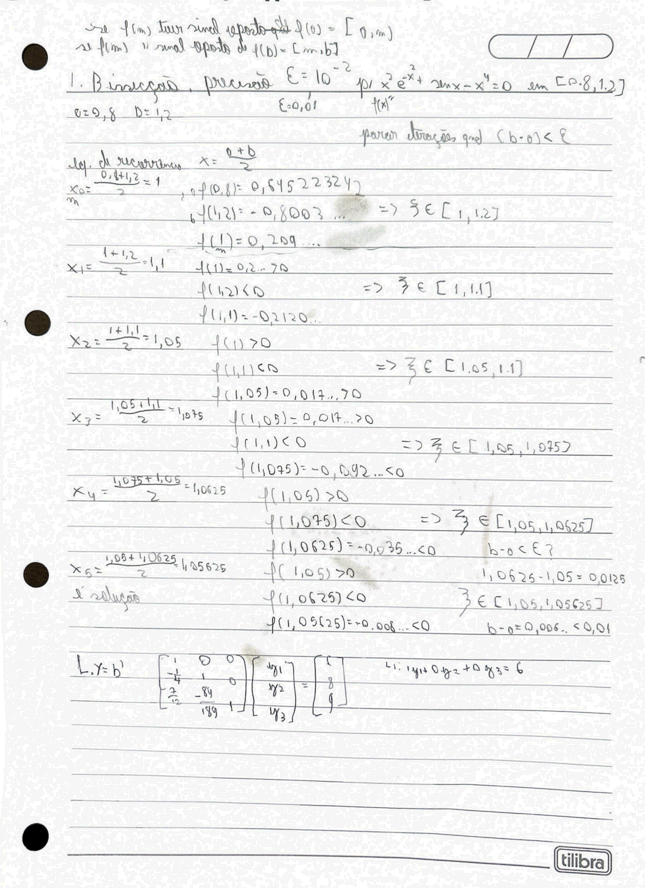 se f(m) tiver sinal oposto f(a) = [a, m)
se f(m) " sinal oposto de f(b) = [m, b]
1. Bissecção, precisão ε = 10^-2 p/ x² e^-x² + senx - x⁴ = 0 em [0.8, 1.2]
ε = 0,01 f(x)"
a = 0,8 b = 1,2
parar iterações qnd (b-a) < ε
eq. de recorrência x = (a+b)/2
x₀ = (0,8+1,2)/2 = 1 a f(0,8) = 0,645223242
m b f(1,2) = -0,8003... => ξ ∈ [1, 1.2]
f(1) = 0,209...
m
x₁ = (1+1,2)/2 = 1,1 f(1) = 0,2... > 0
f(1,2) < 0 => ξ ∈ [1, 1.1]
f(1,1) = -0,2120...
x₂ = (1+1,1)/2 = 1,05 f(1) > 0
f(1,1) < 0 => ξ ∈ [1.05, 1.1]
f(1,05) = 0,017... > 0
x₃ = (1,05+1,1)/2 = 1,075 f(1,05) = 0,017... > 0
f(1,1) < 0 => ξ ∈ [1,05, 1,075]
f(1,075) = -0,092... < 0
x₄ = (1,075+1,05)/2 = 1,0625 f(1,05) > 0
f(1,075) < 0 => ξ ∈ [1,05, 1,0625]
f(1,0625) = -0,035... < 0 b-a < ε?
x₅ = (1,05+1,0625)/2 = 1,05625 f(1,05) > 0 1,0625 - 1,05 = 0,0125
é solução f(1,0625) < 0 ξ ∈ [1,05, 1,05625]
f(1,05625) = -0.008... < 0 b-a = 0,006.. < 0,01
L.Y = b' [1 0 0] [y1] = [6] L1: 1y1 + 0y2 + 0y3 = 6
[-1/4 1 0] [y2] [8]
[7/12 -84/189 1] [y3]
tilibra